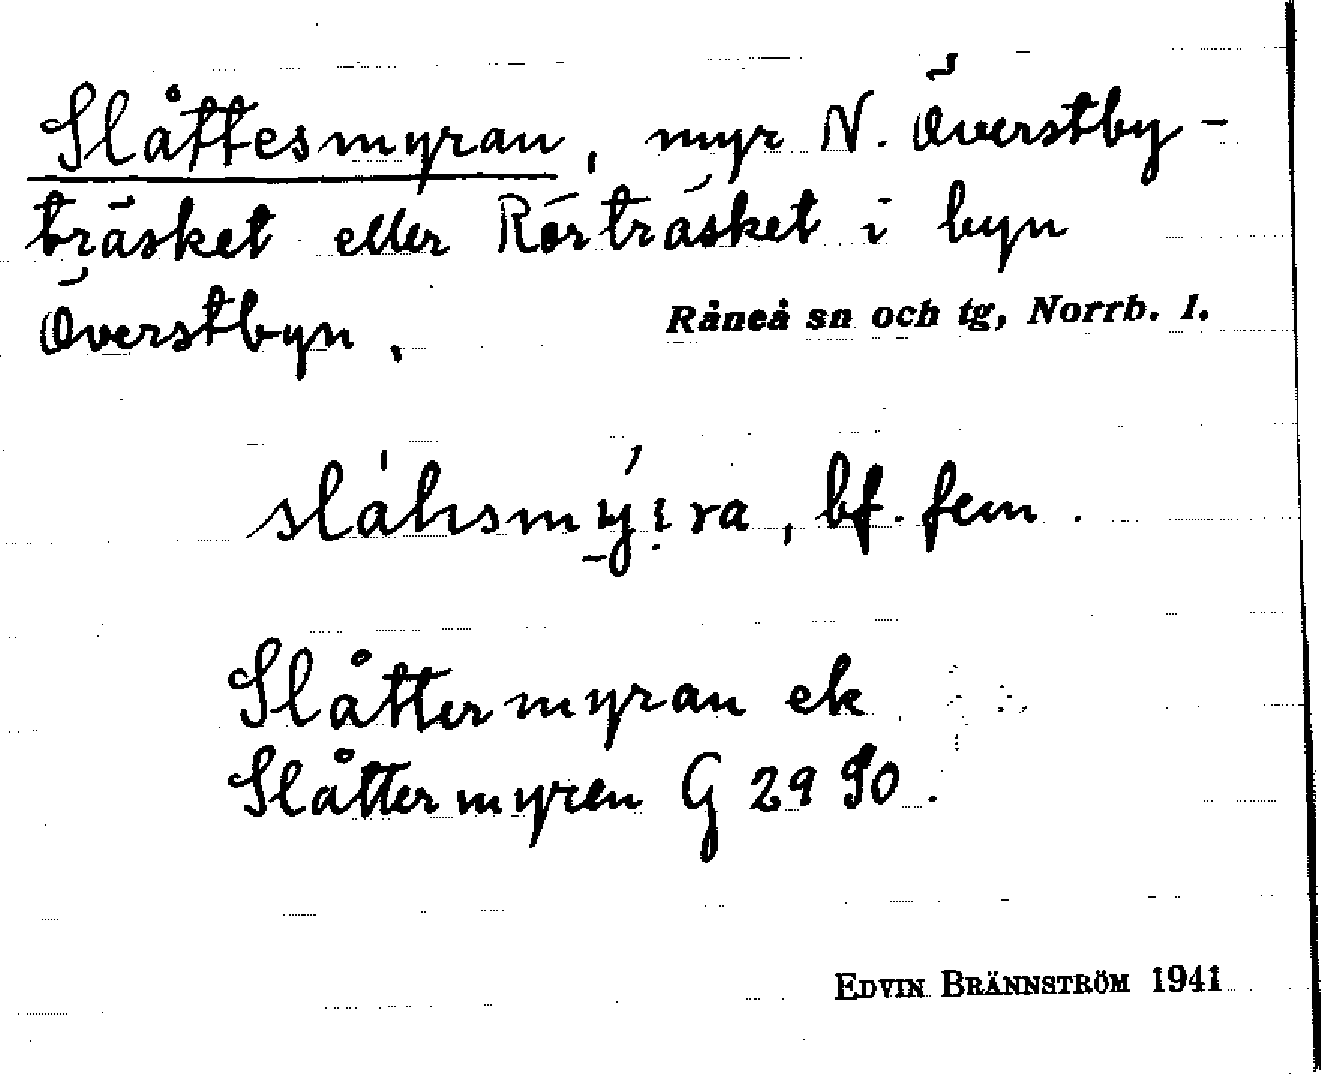 Slåttesmyran, myr N. Överstby-
träsket eller Rörträsket i byn
Överstbyn.
Råneå sn och tg, Norrb. l.
bf. fem.
Slåttermyran ek
Slåttermyren G 29 90.
EDVIN BRÄNNSTRÖM 1941